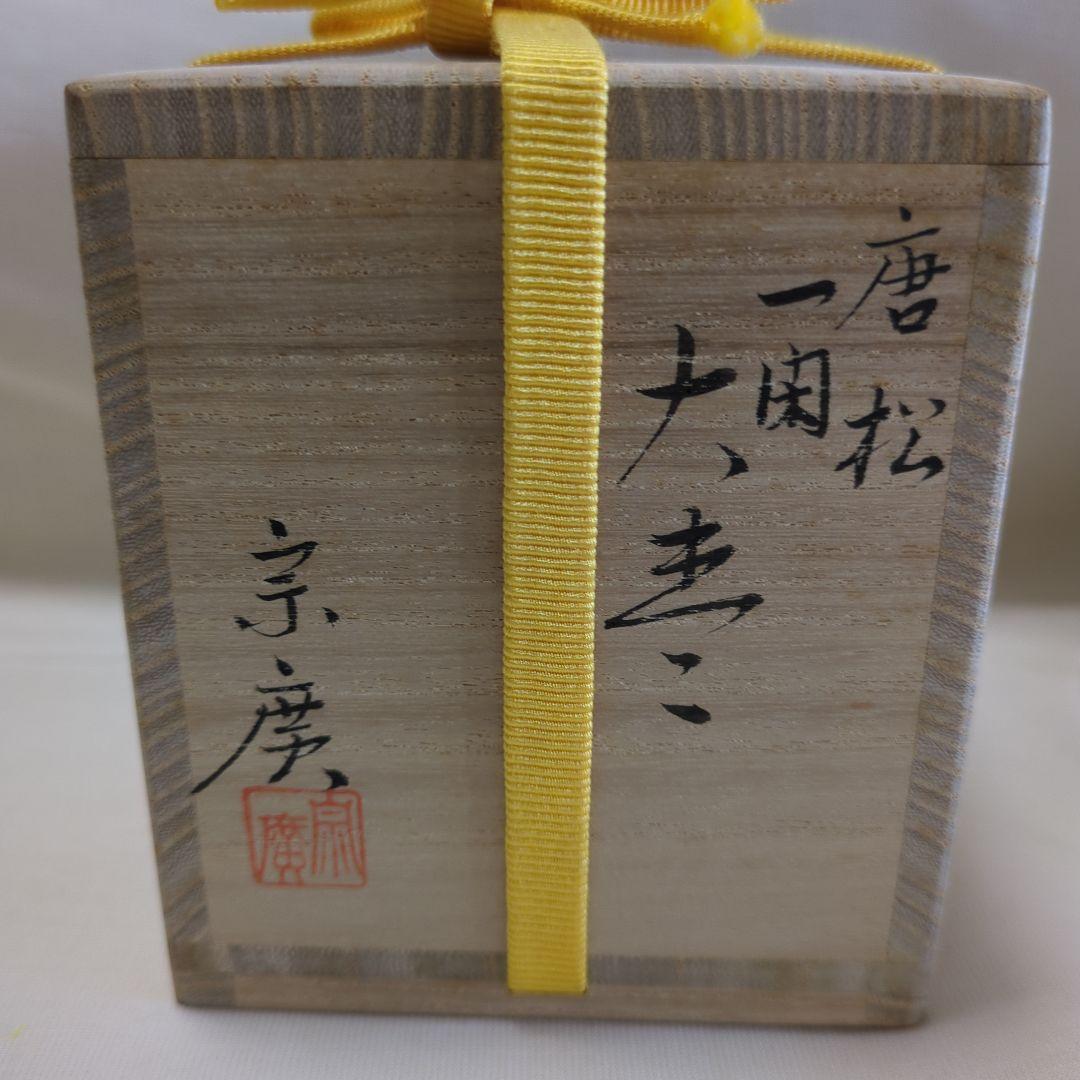 唐松
一閑
大棗
宗廣
宗廣